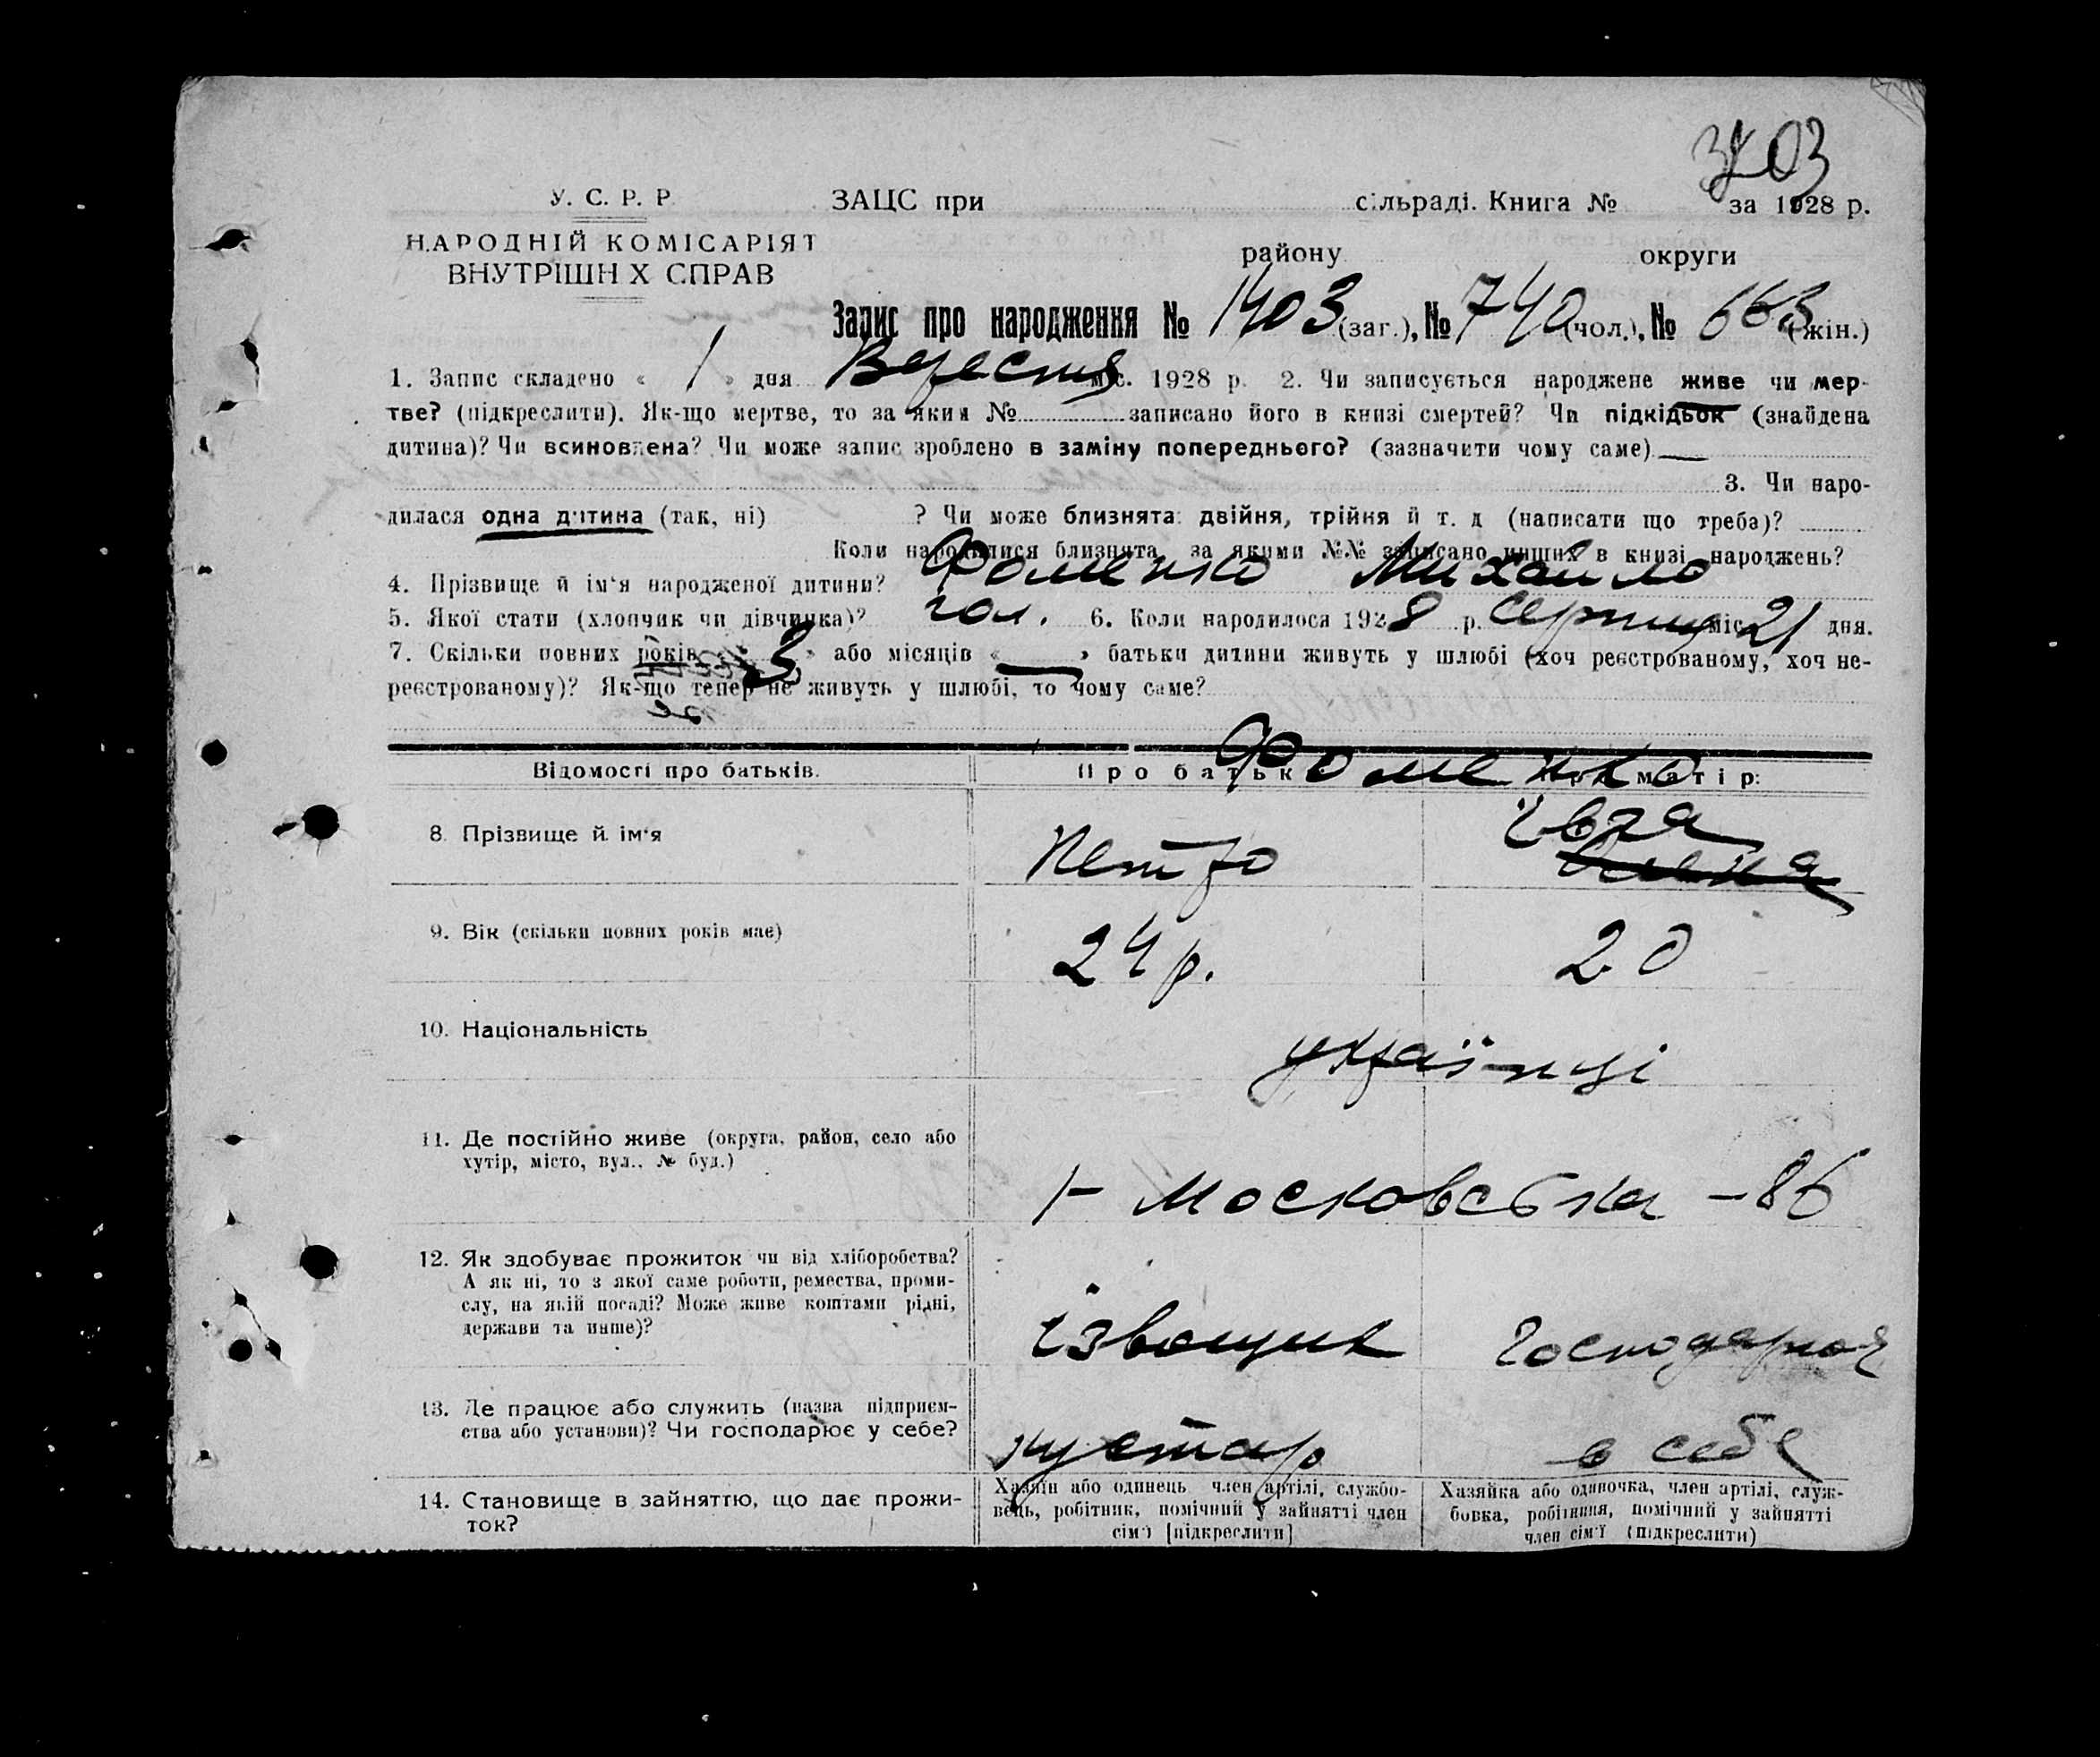 У. С. Р. Р
НАРОДНІЙ КОМІСАРІЯТ
ВНУТРІШН Х СПРАВ
ЗАЦС при сільраді. Книга № за 1928 р.
району округи
Запис про народження № 1403 (заг.), № 740 (чол.), № 663 (жін.)
1. Запис складено « 1 » дня Вересня міс. 1928 р. 2. Чи записується народжене живе чи мер-
тве? (підкреслити). Як-що мертве, то за яким № записано його в книзі смертей? Чи підкідьок (знайдена
дитина)? Чи всиновлена? Чи може запис зроблено в заміну попереднього? (зазначити чому саме)
3. Чи наро-
дилася одна дитина (так, ні) ? Чи може близнята: двійня, трійня й т. д (написати що треба)?
Коли народилися близнята, за якими №№ записано инших в книзі народжень?
4. Прізвище й ім'я народженої дитини? Фоменко Михайло
5. Якої стати (хлопчик чи дівчинка)? чол. 6. Коли народилося 1928 р. Серпня міс 21 дня.
7. Скільки повних років « 3 » або місяців « — » батьки дитини живуть у шлюбі (хоч реєстрованому, хоч не-
реєстрованому)? Як-що тепер не живуть у шлюбі, то чому саме?
Відомості про батьків. Про батька Про матір:
Фоменко
8. Прізвище й ім'я Петро
9. Вік (скільки повних років має) 24 р. 20
10. Національність українці
11. Де постійно живе (округа, район, село або
хутір, місто, вул., № буд.)
1– Московська – 86
12. Як здобуває прожиток чи від хліборобства?
А як ні, то з якої саме роботи, ремества, проми-
слу, на якій посаді? Може живе коштами рідні,
держави та инше)?
ізвощик господарює
13. Де працює або служить (назва підприєм-
ства або установи)? Чи господарює у себе?
кустар в себе
14. Становище в зайняттю, що дає прожи-
ток?
Хазяїн або одинець член артілі, службо-
вець, робітник, помічний у зайнятті член
сім'ї [підкреслити]
Хазяйка або одиночка, член артілі, служ-
бовка, робітниця, помічний у зайнятті
член сім'ї (підкреслити)